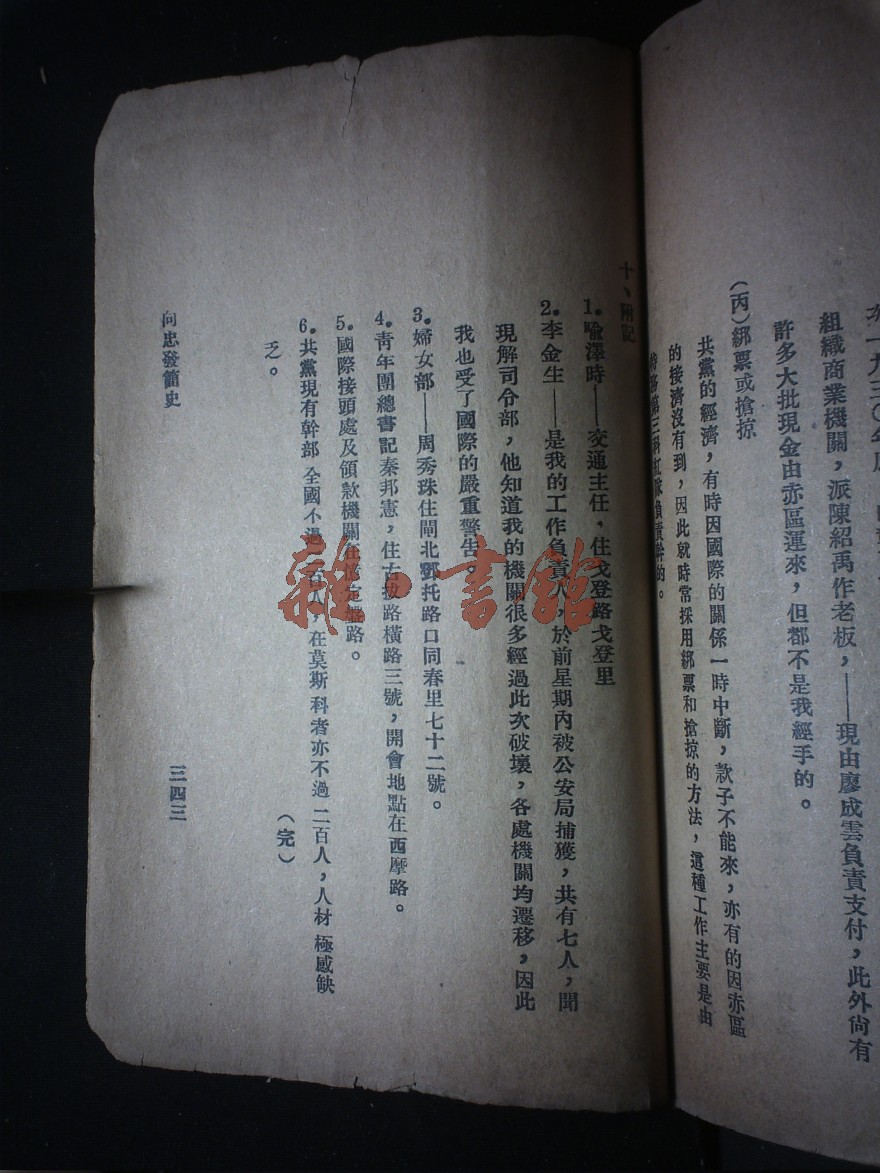 組織商業機關，派陳紹禹作老板，——現由廖成雲負責支付，此外尙有
許多大批現金由赤區運來，但都不是我經手的。
(丙)綁票或搶掠
共黨的經濟，有時因國際的關係一時中斷，款子不能來，亦有的因赤區
的接濟沒有到，因此就時常採用綁票和搶掠的方法，這種工作主要是由
特務第三科紅隊負責幹的。
十、附記
1. 喻澤時——交通主任，住戈登路戈登里
2. 李金生——是我的工作負責人，於前星期內被公安局捕獲，共有七人，聞
現解司令部，他知道我的機關很多經過此次破壞，各處機關均遷移，因此
我也受了國際的嚴重警告。
3. 婦女部——周秀珠住閘北鄧托路口同春里七十二號。
4. 靑年團總書記秦邦憲，住古拔路橫路三號，開會地點在西摩路。
5. 國際接頭處及領款機關在 路。
6. 共黨現有幹部 全國不過 百人，在莫斯科者亦不過 二百人，人材 極感缺
乏。
(完)
向忠發簡史
三四三
雜·書館